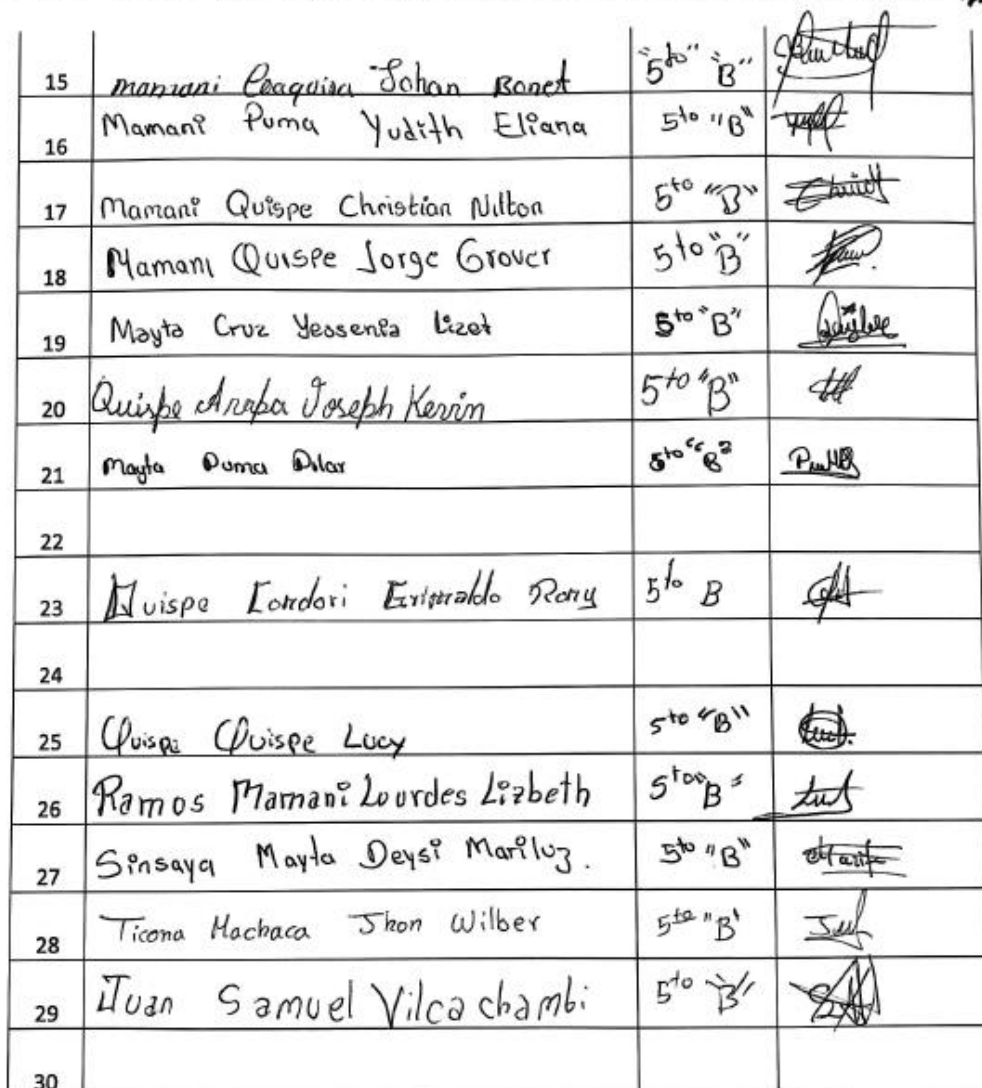 15 mamani Ccaquira Johan Bonet "5to" "B"
16 Mamani Puma Yudith Eliana 5to "B"
17 Mamani Quispe Christian Nilton 5to "B"
18 Mamani Quispe Jorge Grover 5to "B"
19 Mayta Cruz Yessenia Lizet 5to "B"
20 Quispe Arapa Joseph Kervin 5to "B"
21 Mayta Puma Pilar 5to "B"
22
23 Quispe Condori Grimaldo Rony 5to B
24
25 Quispe Quispe Lucy 5to "B"
26 Ramos Mamani Lourdes Lizbeth 5to "B"
27 Sinsaya Mayta Deysi Mariluz. 5to "B"
28 Ticona Machaca Jhon Wilber 5to "B"
29 Juan Samuel Vilcachambi 5to "B"
30